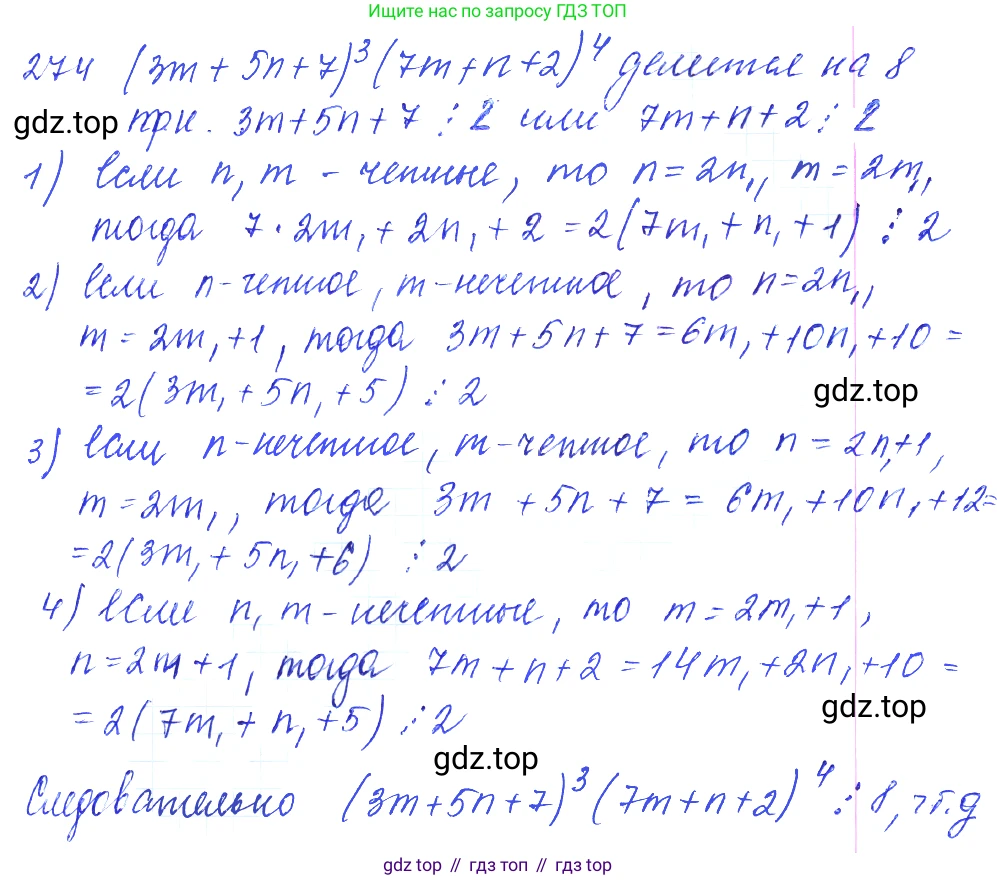 Ищите нас по запросу ГДЗ ТОП
274 (3m + 5n + 7)³ (7m + n + 2)⁴ делится на 8
gdz.top при. 3m + 5n + 7 ⋮ 2 или 7m + n + 2 ⋮ 2
1) если n, m - четные, то n = 2n₁, m = 2m₁,
тогда 7 · 2m₁ + 2n₁ + 2 = 2(7m₁ + n₁ + 1) ⋮ 2
2) если n - четное, m - нечетное, то n = 2n₁,
m = 2m₁ + 1, тогда 3m + 5n + 7 = 6m₁ + 10n₁ + 10 =
= 2(3m₁ + 5n₁ + 5) ⋮ 2 gdz.top
3) если n - нечетное, m - четное, то n = 2n₁ + 1,
m = 2m₁, тогда 3m + 5n + 7 = 6m₁ + 10n₁ + 12 =
= 2(3m₁ + 5n₁ + 6) ⋮ 2
4) если n, m - нечетные, то m = 2m₁ + 1,
n = 2m + 1, тогда 7m + n + 2 = 14m₁ + 2n₁ + 10 =
= 2(7m₁ + n₁ + 5) ⋮ 2 gdz.top
gdz.top
Следовательно (3m + 5n + 7)³ (7m + n + 2)⁴ ⋮ 8, чт.д
gdz top // гдз топ // gdz top